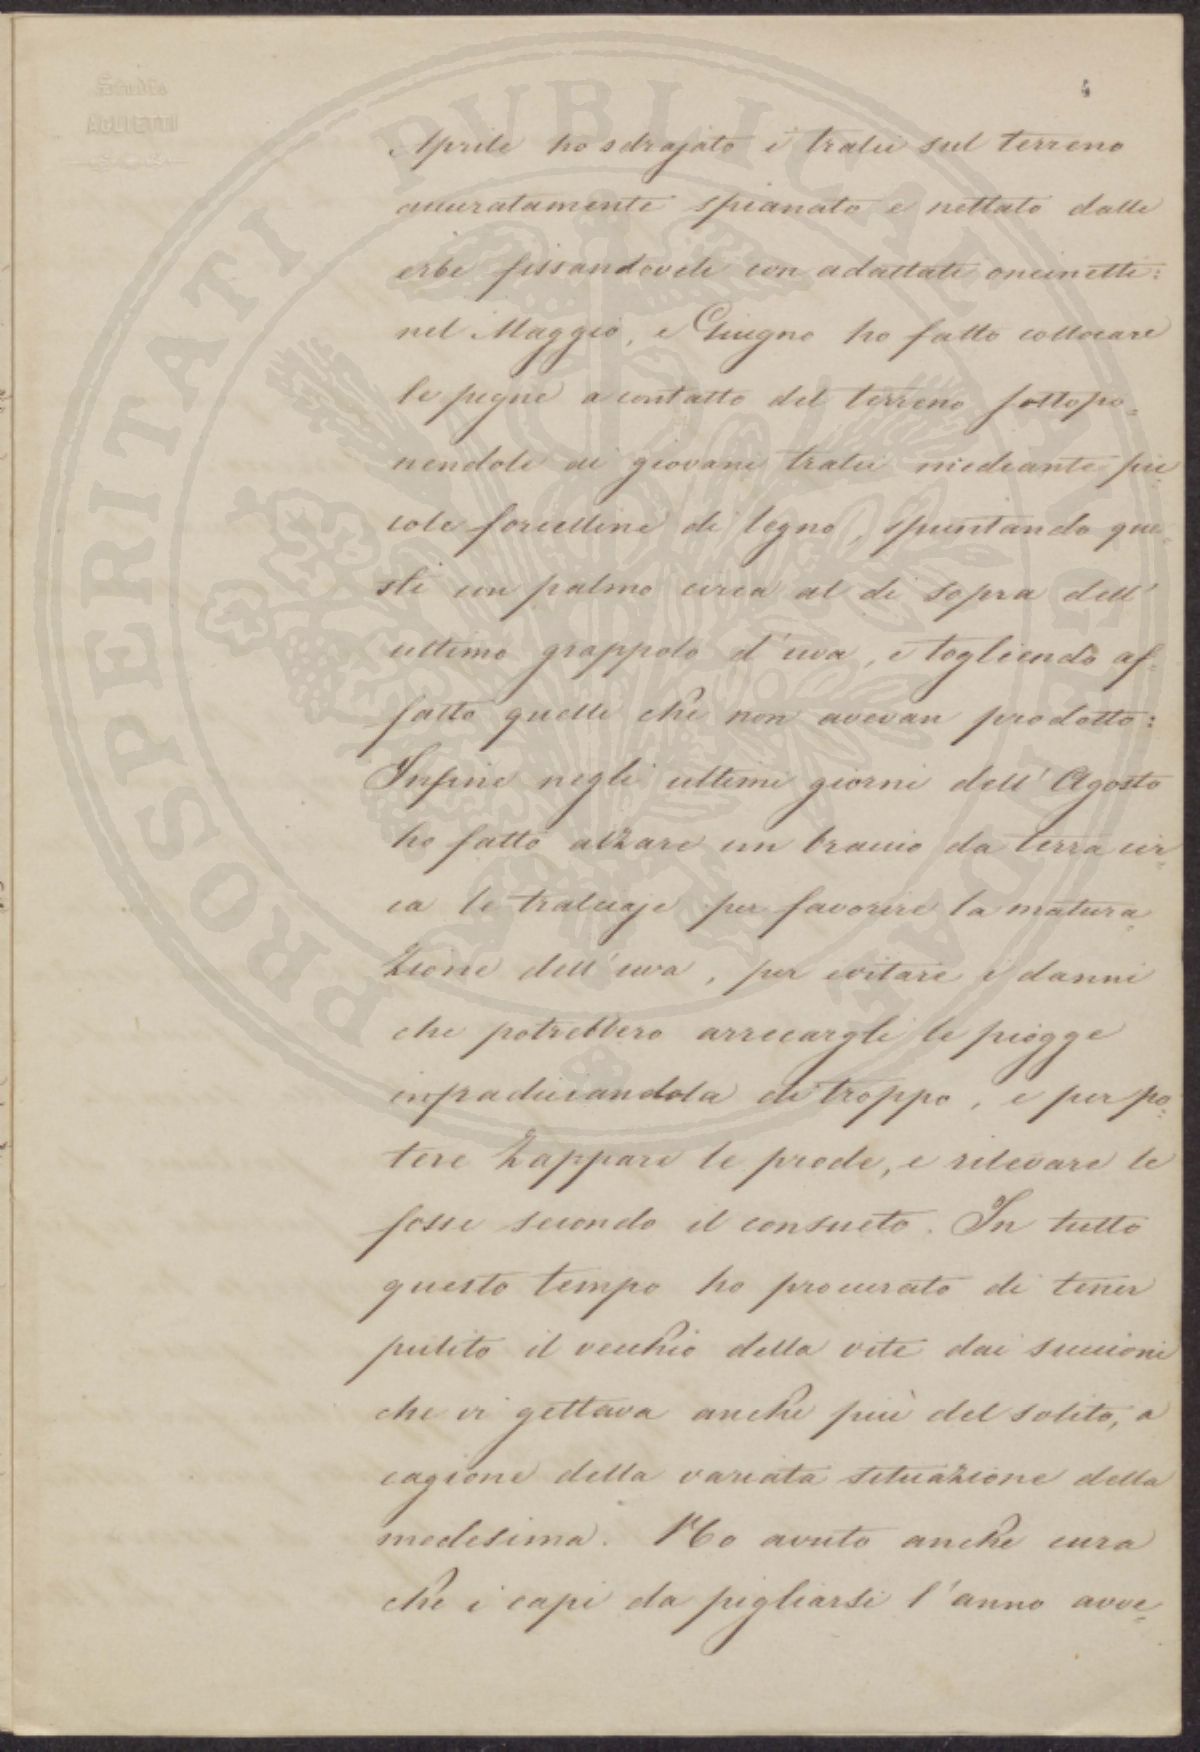 Studio
AGLIETTI
4
Aprile ho sdrajato i tralci sul terreno
accuratamente spianato e nettato dalle
erbe fissandoveli con adattati oncinetti:
nel Maggio, e Giugno ho fatto collocare
le pigne a contatto del terreno sottopo-
nendole ai giovani tralci mediante pic-
cole forcelline di legno, spuntando que-
sti un palmo circa al di sopra dell'
ultimo grappolo d'uva, e togliendo af-
fatto quelli che non avevan prodotto:
Infine negli ultimi giorni dell'Agosto
ho fatto alzare un braccio da terra cir-
ca le tralciaje per favorire la matura-
zione dell'uva, per evitare i danni
che potrebbero arrecargli le piogge
infradiciandola di troppo, e per po-
tere zappare le prode, e rilevare le
fosse secondo il consueto. In tutto
questo tempo ho procurato di tener
pulito il vecchio della vite dai succioni
che vi gettava anche più del solito, a
cagione della variata situazione della
medesima. Ho avuto anche cura
che i capi da pigliarsi l'anno avve-
PROSPERITATI PUBLICAE AUGENDAE